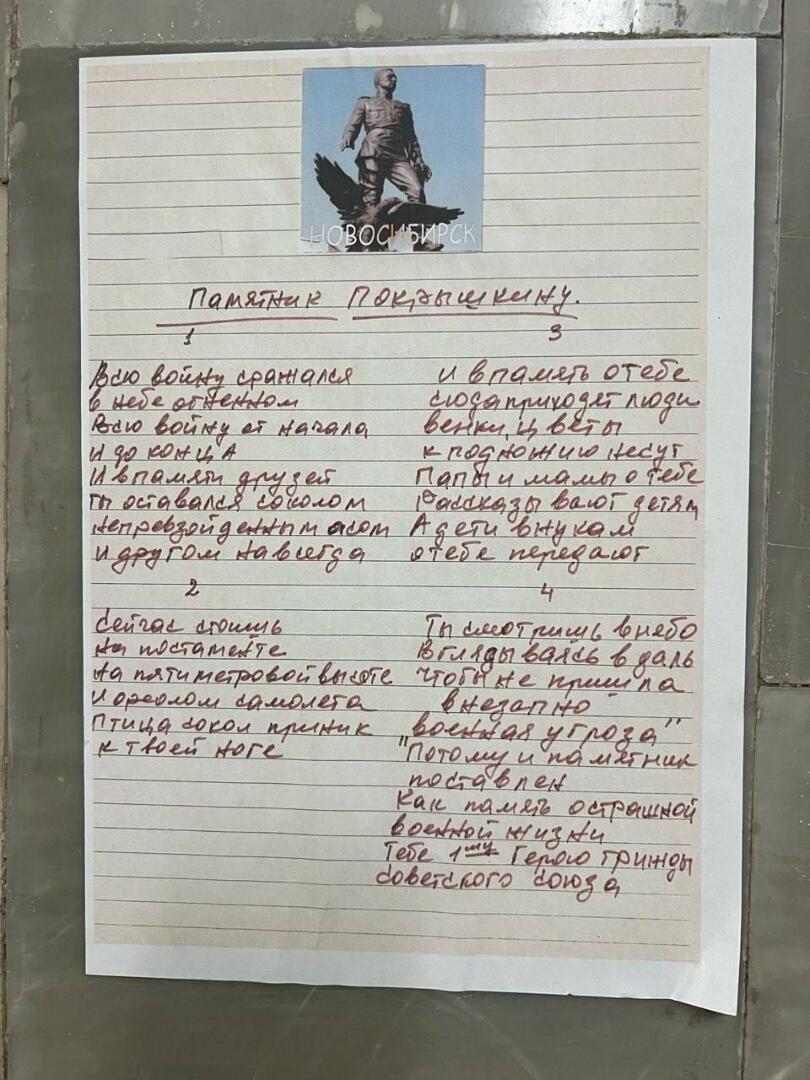 НОВОСИБИРСК
Памятник Покрышкину.
1
Всю войну сражался
в небе огненном
Всю войну от начала
и до конца
И в памяти друзей
ты оставался соколом
непревзойденным асом
и другом навсегда
2
Сейчас стоишь
на постаменте
на пятиметровой высоте
и ореолом самолета
Птица сокол приник
к твоей ноге
3
И в память о тебе
сюда приходят люди
венки, цветы
к подножию несут
Папы и мамы о тебе
Рассказывают детям
А дети внукам
о тебе передают
4
Ты смотришь в небо
Вглядываясь в даль
Чтобы не пришла
внезапно
военная угроза"
"Потому и памятник
поставлен
Как память о страшной
военной жизни
Тебе 1му Герою трижды
советского союза